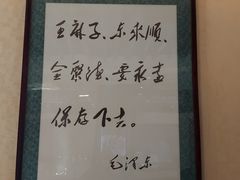 王麻子、东来順、
全聚德、要永远
保存下去。
毛泽东